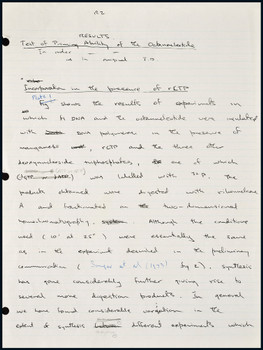 RESULTS
Test of Priming Ability of the Octanucleotide
In order
Incorporation in the presence of rGTP
Fig shows the results of experiments in
which DNA and the octanucleotide were incubated
with DNA polymerase in the presence of
manganese, rGTP and the three other
deoxynucleoside triphosphates, one of which
was labelled with 32P. The
products obtained were digested with ribonuclease
A and fractionated on two-dimensional
homochromatography. Although the conditions
used (10' at 25°) were essentially the same
as in the experiment described in the preliminary
communication (Sanger et al (1973) by E), synthesis
has gone considerably further giving rise to
several more digestion products. In general
we have found considerable variation in the
extent of synthesis different experiments which